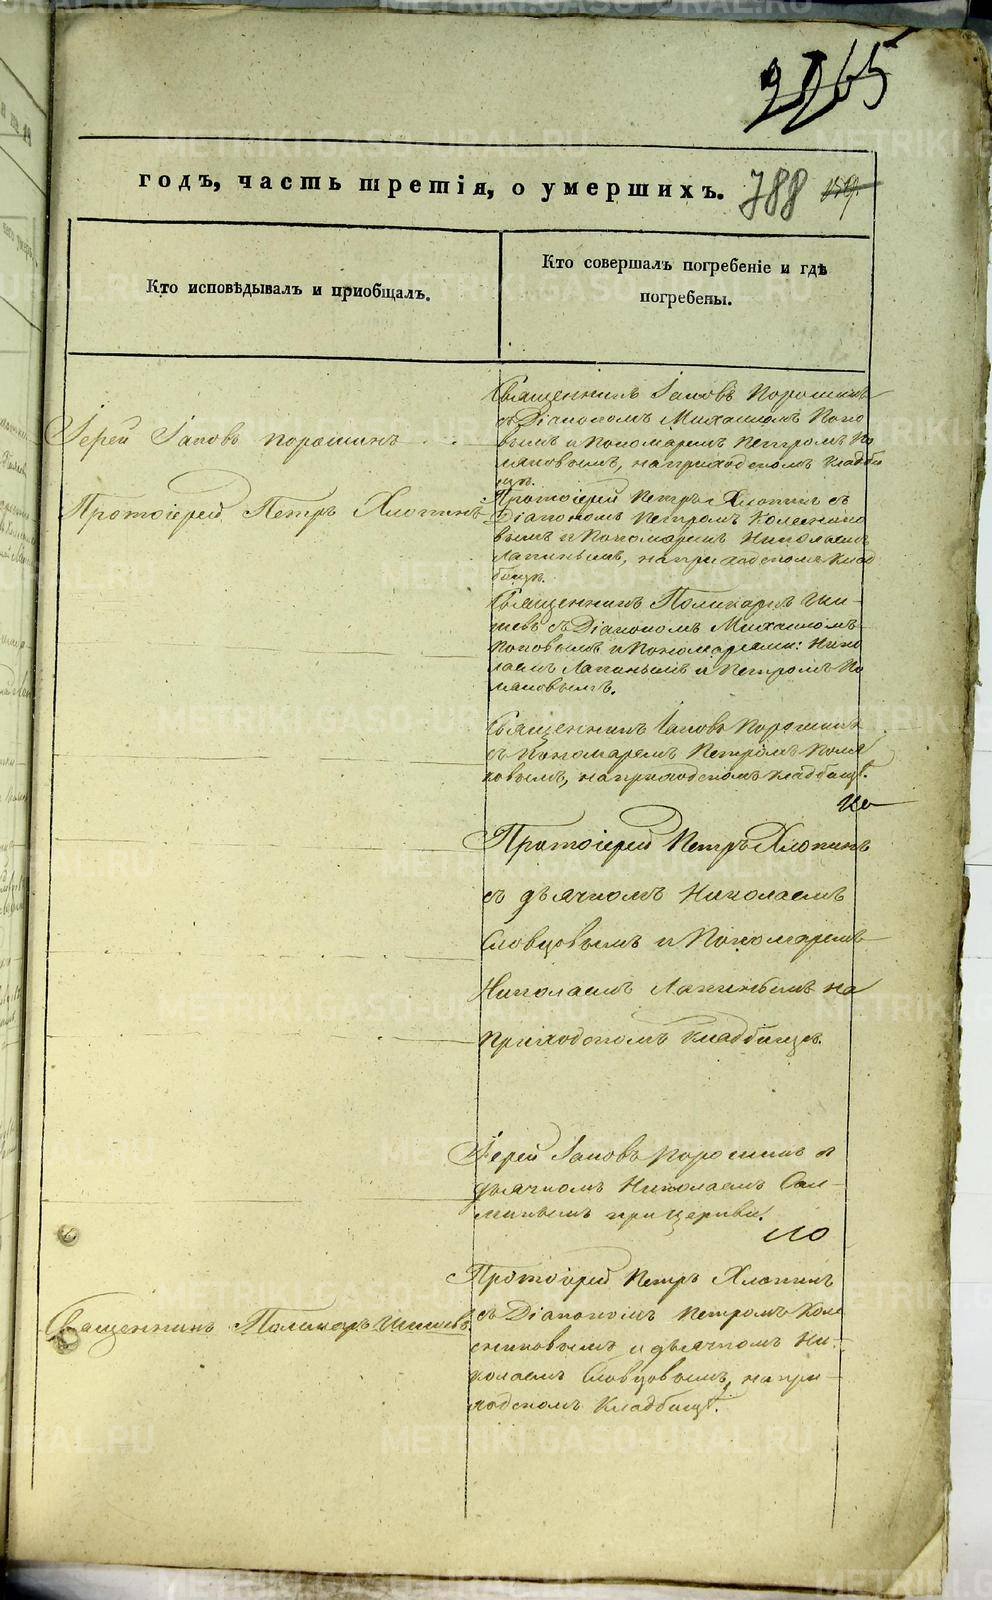 2265
годъ, часть третія, о умершихъ. 788 159.
Кто исповѣдывалъ и пріобщалъ.
Кто совершалъ погребеніе и гдѣ
погребены.
Іерей Іаковъ Порошинъ
Священникъ Іаковъ Порошинъ
съ Діакономъ Михаиломъ Попо
вымъ и Пономаремъ Петромъ По
ляковымъ, на приходскомъ кладби
щѣ.
Протоіерей Петръ Хлопинъ
Протоіерей Петръ Хлопинъ съ
Діакономъ Петромъ Колеснико
вымъ и Пономаремъ Николаемъ
Лапинымъ, на приходскомъ клад
бищѣ.
Священникъ Поликарпъ
съ Діакономъ Михаиломъ
Поповымъ и Пономарями: Нико
лаемъ Лапинымъ и Петромъ По
ляковымъ.
Священникъ Іаковъ Порошинъ
съ Пономаремъ Петромъ Поля
ковымъ, на приходскомъ кладбищѣ.
Протоіерей Петръ Хлопинъ
съ дьячкомъ Николаемъ
Словцовымъ и Пономаремъ
Николаемъ Лапинымъ на
приходскомъ кладбищѣ.
Іерей Іаковъ Порошинъ съ
дьячкомъ Николаемъ
при церкви.
Протоіерей Петръ Хлопинъ
съ Діакономъ Петромъ Коле
сниковымъ и дьячкомъ Ни-
колаемъ Словцовымъ, на при-
ходскомъ кладбищѣ.
Священникъ Поликарпъ
METRIKI.GASO-URAL.RU